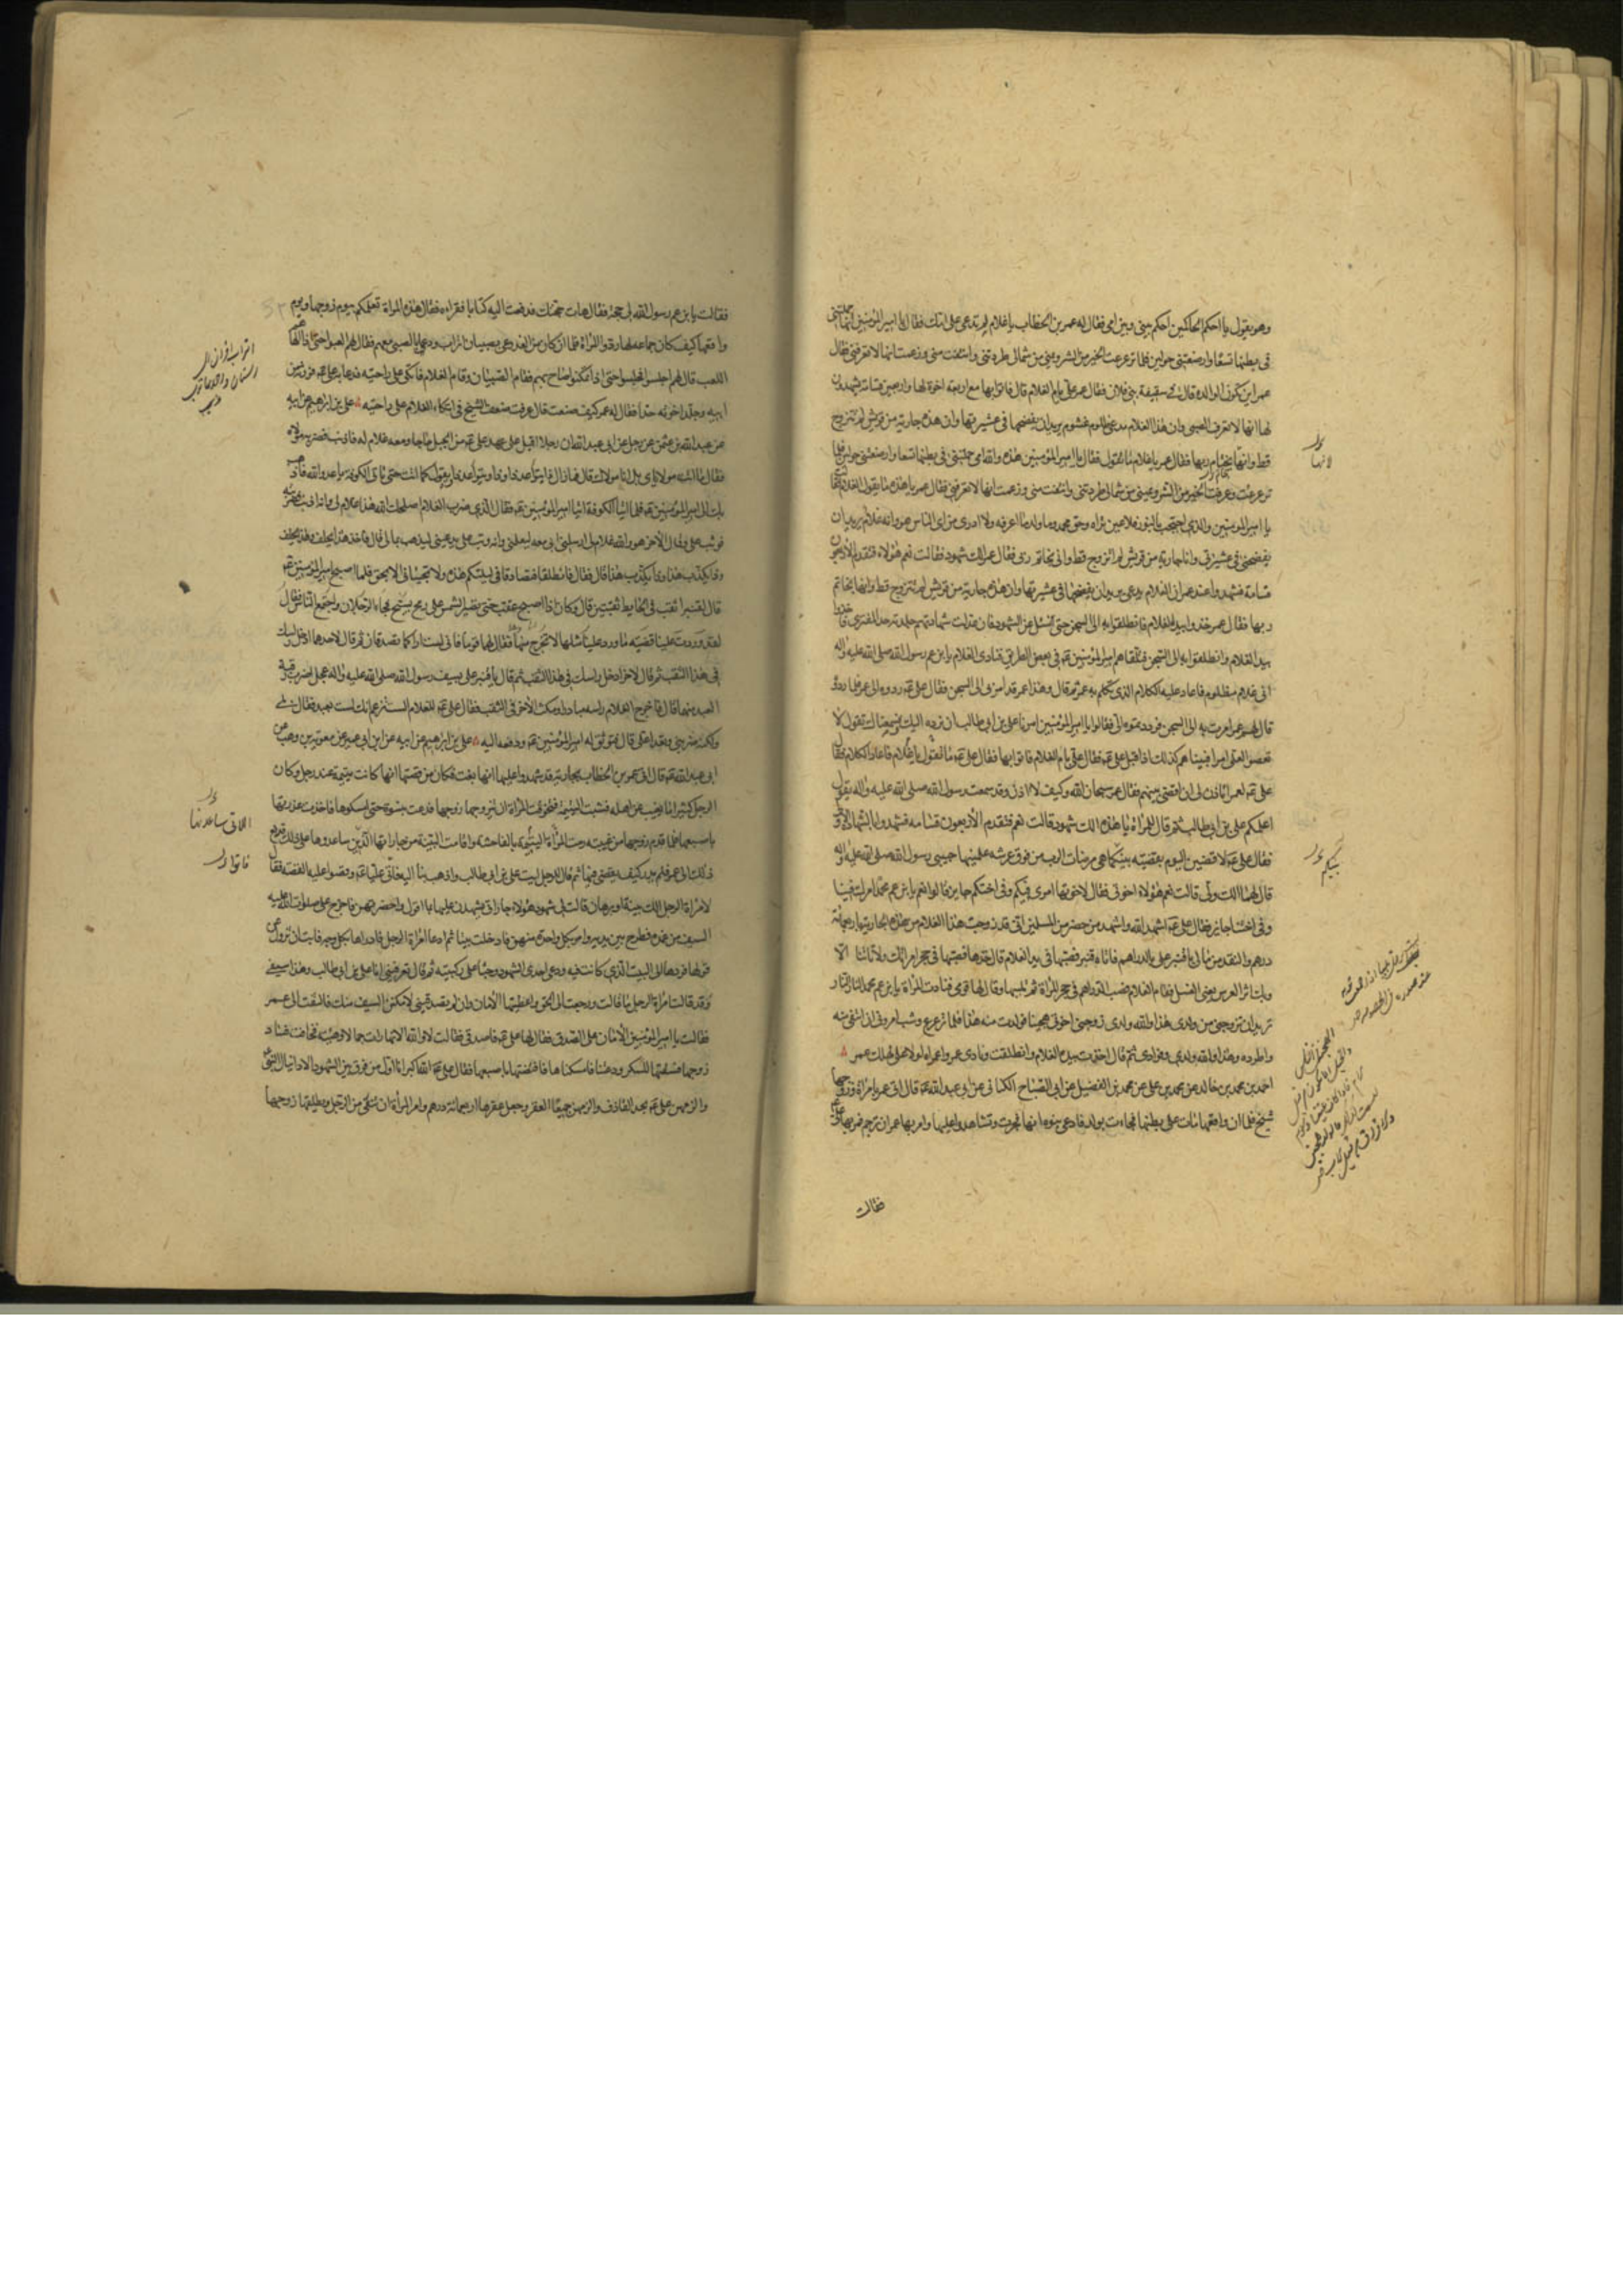 وهو يقول يا احكم الحاكمين احكم بيني وبين امي فقال له عمر بن الخطاب يا غلام لم تدعو على امك فقال يا امير المؤمنين انها حملتني
في بطنها تسعا وارضعتني حولين فلما ترعرعت وعرفت الخير من الشر ويميني من شمالي طردتني وانتفت مني وزعمت انها لا تعرفني فقال
عمر اين تكون الوالدة قال في سقيفة بني فلان فقال عمر علي بام الغلام قال فاتوا بها مع اربعة اخوة لها واربعين قسامة يشهدون
لها انها لا تعرف الصبي وان هذا الغلام مدعي ظلوم غشوم يريد ان يفضحها في عشيرتها وان هذه جارية من قريش لم تتزوج
قط وانها بخاتم ربها فقال عمر يا غلام ما تقول فقال يا امير المؤمنين هذه والله امي حملتني في بطنها تسعا وارضعتني حولين فلما
ترعرعت وعرفت الخير من الشر ويميني من شمالي طردتني وانتفت مني وزعمت انها لا تعرفني فقال عمر يا هذه ما يقول الغلام فقالت
يا امير المؤمنين والذي احتجب بالنور فلا عين تراه وحق محمد وما ولد ما اعرفه ولا ادري من اي الناس هو وانه غلام يريد ان
يفضحني في عشيرتي وانا جارية من قريش لم اتزوج قط واني بخاتم ربي فقال عمر الك شهود فقالت نعم هؤلاء فتقدم الاربعون
قسامة فشهدوا عند عمر ان الغلام مدعي يريد ان يفضحها في عشيرتها وان هذه جارية من قريش لم تتزوج قط وانها بخاتم
ربها فقال عمر خذوا بيد الغلام فانطلقوا به الى السجن حتى نسئل عن الشهود فان عدلت شهادتهم جلدته حد المفتري فاخذوا
بيد الغلام وانطلقوا به الى السجن فتلقاهم امير المؤمنين ع في بعض الطريق فنادى الغلام يا ابن عم رسول الله صلى الله عليه واله
اني غلام مظلوم فاعاد عليه الكلام الذي تكلم به عمر ثم قال وهذا عمر قد امر بي الى السجن فقال علي ع ردوه الى عمر فلما ردوه
قال لهم عمر امرت به الى السجن فرددتموه الي فقالوا يا امير المؤمنين امرنا علي بن ابي طالب ان نرده اليك وسمعناك تقول لا
تعصوا لعلي امرا فبينا هم كذلك اذ اقبل علي ع فقال علي بام الغلام فاتوا بها فقال علي ع ما تقول يا غلام فاعاد الكلام فقال
علي ع لعمر اتاذن لي ان اقضي بينهم فقال عمر سبحان الله وكيف لا اذن وقد سمعت رسول الله صلى الله عليه واله يقول
اعلمكم علي بن ابي طالب ثم قال للمراة يا هذه الك شهود قالت نعم فتقدم الاربعون قسامة فشهدوا بالشهادة الاولى
فقال علي ع لاقضين اليوم بقضية بينكما هي مرضات الرب من فوق عرشه علمنيها حبيبي رسول الله صلى الله عليه واله
قال لها الك ولي قالت نعم هؤلاء اخوتي فقال لاخوتها امري فيكم وفي اختكم جايز قالوا نعم يا ابن عم محمد امرك فينا
وفي اختنا جايز فقال علي ع اشهد الله واشهد من حضر من المسلمين اني قد زوجت هذا الغلام من هذه الجارية باربعمائة
درهم والنقد من مالي يا قنبر علي بالدراهم فاتاه قنبر فصبها في يد الغلام قال خذها فصبها في حجر امراتك ولا تاتنا الا
وبك اثر العرس يعني الغسل فقام الغلام فصب الدراهم في حجر المراة ثم تلببها وقال لها قومي فنادت المراة يا ابن عم محمد النار النار
تريد ان تزوجني من ولدي هذا والله ولدي زوجني اخوتي هجينا فولدت منه هذا فلما ترعرع وشب امروني ان انتفي منه
واطرده وهذا والله ولدي وفؤادي ثم قال اخذت بيد الغلام وانطلقت ونادى عمر واعمراه لولا علي لهلك عمر
احمد بن محمد بن خالد عن محمد بن علي عن محمد بن الفضيل عن ابي الصباح الكناني عن ابي عبد الله ع قال اتي عمر بامراة تزوجها
شيخ فلما ان واقعها مات على بطنها فجاءت بولد فادعى بنوه انها فجرت وتشاهدوا عليها وامر بها عمر ان ترجم فمر بها علي ع
لانها
فقالت
فقالت يا ابن عم رسول الله ان لي حجة فقال هات حجتك فدفعت اليه كتابا فقراه فقال هذه المراة تعلمكم بيوم تزوجها ويوم
واقعها وكيف كان جماعه لها ردوا المراة فلما ان كان من الغد دعى بصبيان اتراب ودعى بالصبي معهم فقال لهم العبوا حتى اذا الهاهم
اللعب قال لهم اجلسوا فجلسوا حتى اذا تمكنوا صاح بهم فقام الصبيان وقام الغلام فاتكى على راحتيه فدعا به علي ع فورثه من
ابيه وجلد اخوته حدا فقال له عمر كيف صنعت قال عرفت ضعف الشيخ في اتكاء الغلام على راحتيه علي بن ابراهيم عن ابيه
عن عبد الله بن عثمن عن رجل عن ابي عبد الله ان رجلا اقبل على عهد علي ع من الجبل حاجا ومعه غلام له فاذنب فضربه مولاه
فقال ما انت مولاي بل انا مولاك قال فما زال
بك الى امير المؤمنين ع فلما اتيا الكوفة اتيا امير المؤمنين ع فقال الذي ضرب الغلام اصلحك الله هذا غلام لي وانه اذنب فضربته
فوثب علي وقال الاخر هو والله غلام لي ان ابي ارسلني معه ليعلمني وانه وثب علي يدعيني ليذهب بمالي قال فاخذ هذا يحلف وهذا يحلف
وذا يكذب هذا وذا يكذب هذا قال فقال فانطلقا فتصادقا في ليلتكم هذه ولا تجيئاني الا بحق فلما اصبح امير المؤمنين ع
قال لقنبر اثقب في الحايط ثقبين قال وكان اذا اصبح عقب حتى تصير الشمس على رمح يسبح فجاء الرجلان واجتمع الناس فقالوا
لقد وردت علينا قضية ما ورد علينا مثلها لا يخرج منها فقال لهما قوما فاني لست اراكما تصدقان ثم قال لاحدهما ادخل راسك
في هذا الثقب ثم قال للاخر ادخل راسك في هذا الثقب ثم قال يا قنبر علي بسيف رسول الله صلى الله عليه واله عجل اضرب رقبة
العبد منهما قال فاخرج الغلام راسه مبادرا ومكث الاخر في الثقب فقال علي ع للغلام الست تزعم انك لست بعبد فقال بلى
ولكنه ضربني وتعدى علي قال فتوثق له امير المؤمنين ع ودفعه اليه علي بن ابراهيم عن ابيه عن ابن ابي عمير عن معوية بن وهب عن
ابي عبد الله ع قال اتي عمر بن الخطاب بجارية قد شهدوا عليها انها بغت فكان من قصتها انها كانت يتيمة عند رجل وكان
الرجل كثيرا ما يغيب عن اهله فشبت اليتيمة فتخوفت المراة ان يتزوجها زوجها فدعت بنسوة حتى امسكوها فاخذت عذرتها
باصبعها فلما قدم زوجها من غيبته رمت المراة اليتيمة بالفاحشة واقامت البينة من جاراتها الذين ساعدوها على ذلك فرفع
ذلك الى عمر فلم يدر كيف يقضي فيها ثم قال للرجل ايت علي بن ابي طالب واذهب بنا اليه فاتى عليا ع وقصوا عليه القصة فقال
لامراة الرجل الك بينة او برهان قالت لي شهود هؤلاء جاراتي يشهدن عليها بما اقول واحضرتهن فاخرج علي صلوات الله عليه
السيف من غمده فطرح بين يديه وامر بكل واحدة منهن فادخلت بيتا ثم دعا امراة الرجل فادارها بكل وجه فابت ان تزول عن
قولها فردها الى البيت الذي كانت فيه ودعى احدى الشهود وجثا على ركبتيه ثم قال تعرفيني انا علي بن ابي طالب وهذا سيفي
وقد قالت امراة الرجل ما قالت ورجعت الى الحق واعطيتها الامان وان لم تصدقيني لامكنن السيف منك فالتفتت الى عمر
فقالت يا امير المؤمنين الامان على الصدق فقال لها علي ع فاصدقي فقالت لا والله الا انها رات جمالا وهيئة فخافت فساد
زوجها فسقتها المسكر ودعتنا فامسكناها فافتضتها باصبعها فقال علي ع الله اكبر انا اول من فرق بين الشهود الا دانيال النبي
والزمهن علي ع بحد القاذف والزمهن جميعا العقر وجعل عقرها اربعمائة درهم وامر المراة ان تنفى من الرجل ويطلقها زوجها
اللاتي ساعدنها
فاتوا